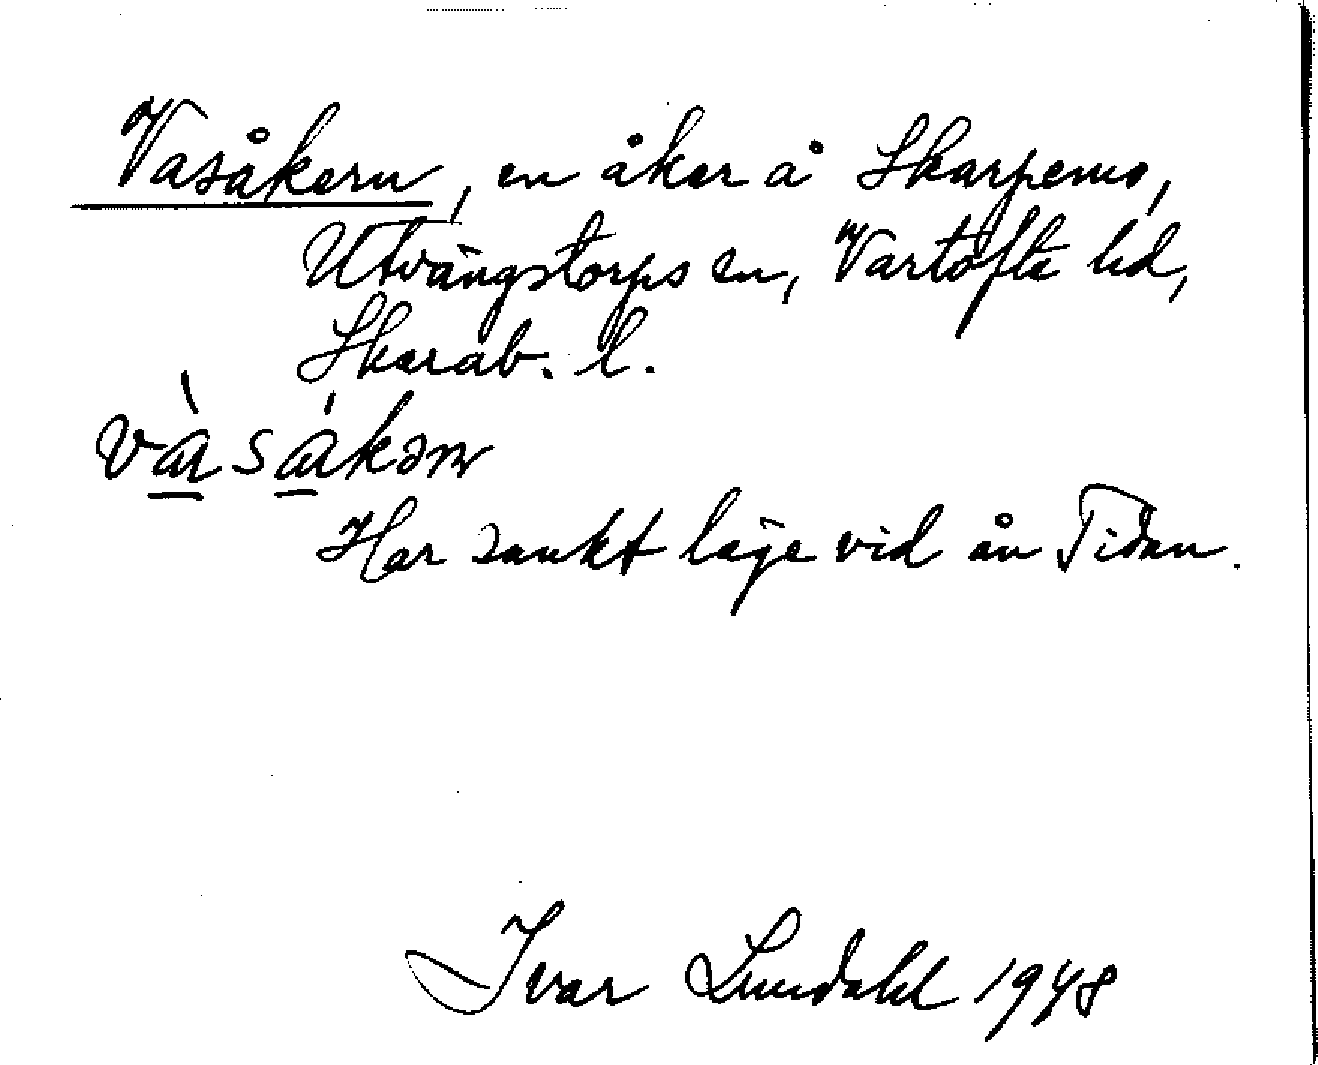 Vasåkern, en åker å Skarpemo,
Utvängstorps sn, Vartofta hd,
Skarab. l.
Har sankt läge vid ån Tidan.
Ivar Lundahl 1948